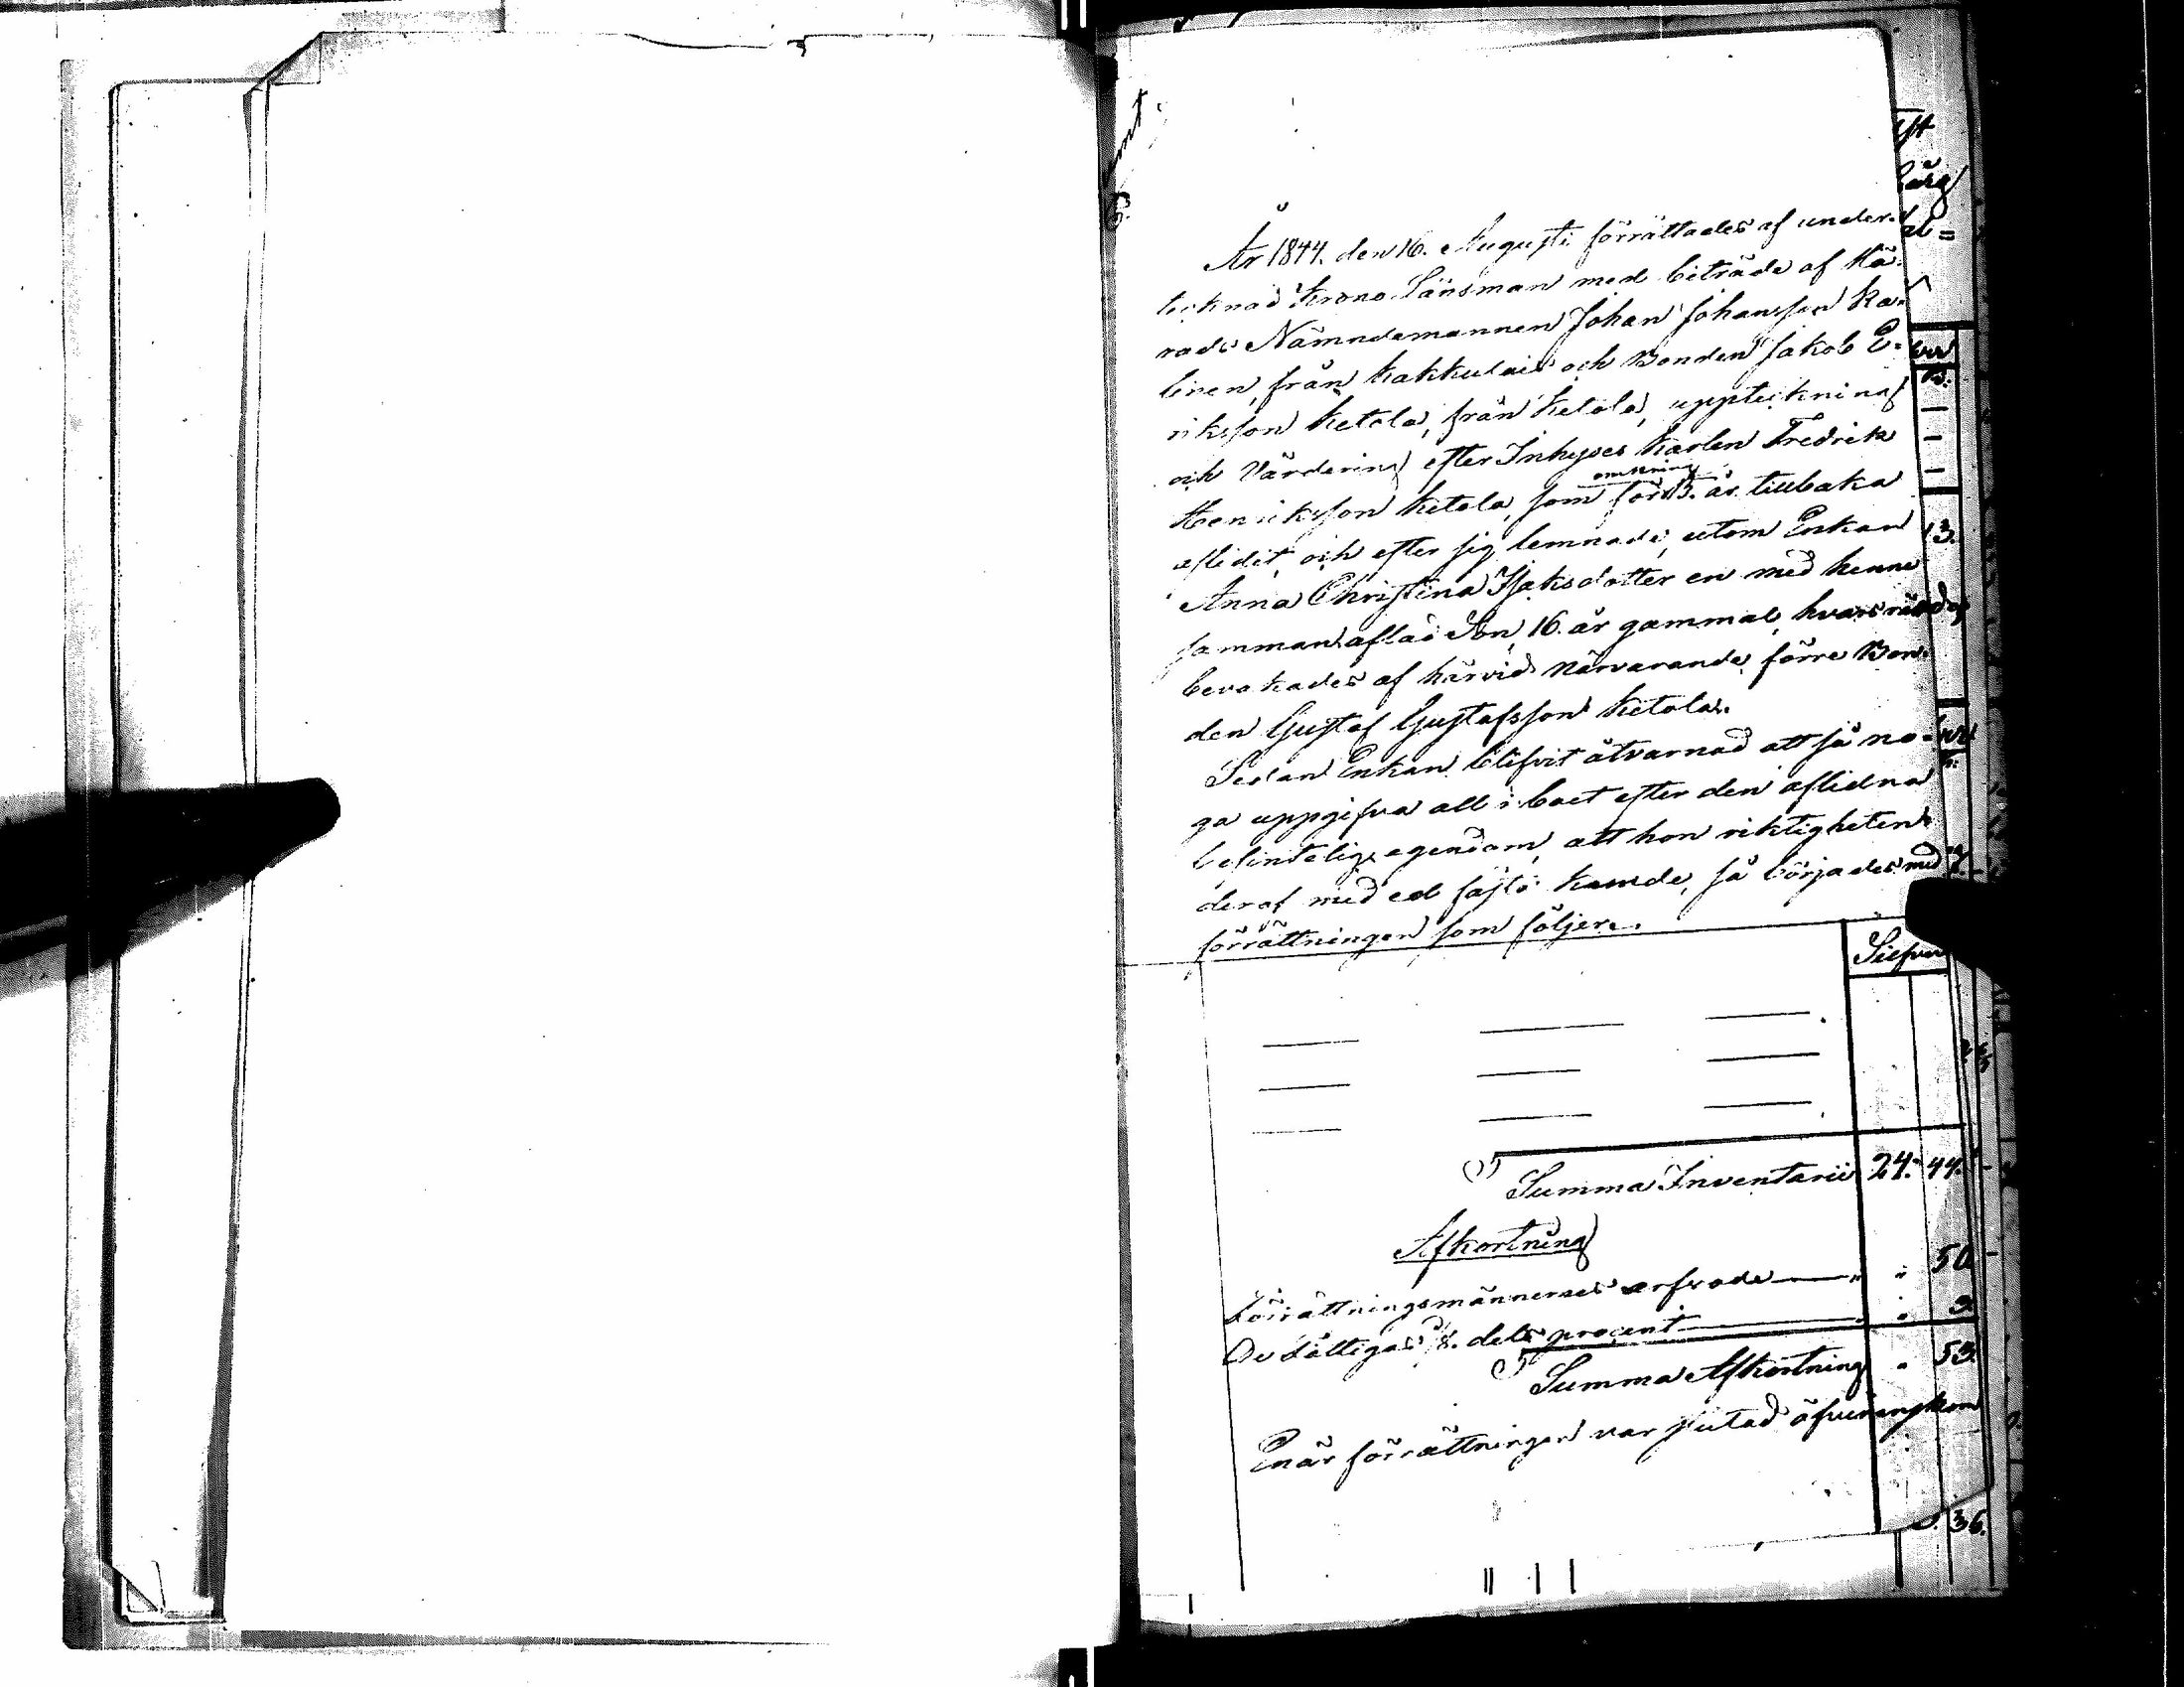 År 1844. den 16. Augusti förrättades af under-
tecknad Krono Länsman med biträde af Hä-
rads Nämndemannen Johan Johansson Ka-
linen, från Kakkulais och Bonden Jakob E-
riksson Ketola, från Ketola, uppteckning
och Värdering efter Inhyses Karlen Fredrik
omkring
Henriksson Ketola, som för 13. år tillbaka
aflidit, och efter sig lemnade, utom Enkan
Anna Christina Isaksdotter en med henne
samman aflad Son, 16. år gammal, hvars rätt
bevakades af härvid närvarande förre Bon-
den Gustaf Gustafsson Ketola.
Sedan Enkan blifvit åtvarnad att så no-
ga uppgifva all i boet efter den aflidna
befintelig egendom, att hon riktigheten
deraf med ed fästa kunde, så börjades med
förrättningen som följer.
Silfver
Summa Inventarii 24. 44.
Afkortning
Förrättningsmännernes arfvode — " " 50
De Fattigas 1/8. dels procent — " " 3
Summa Afkortning " 53.
Enär förrättningen var slutad